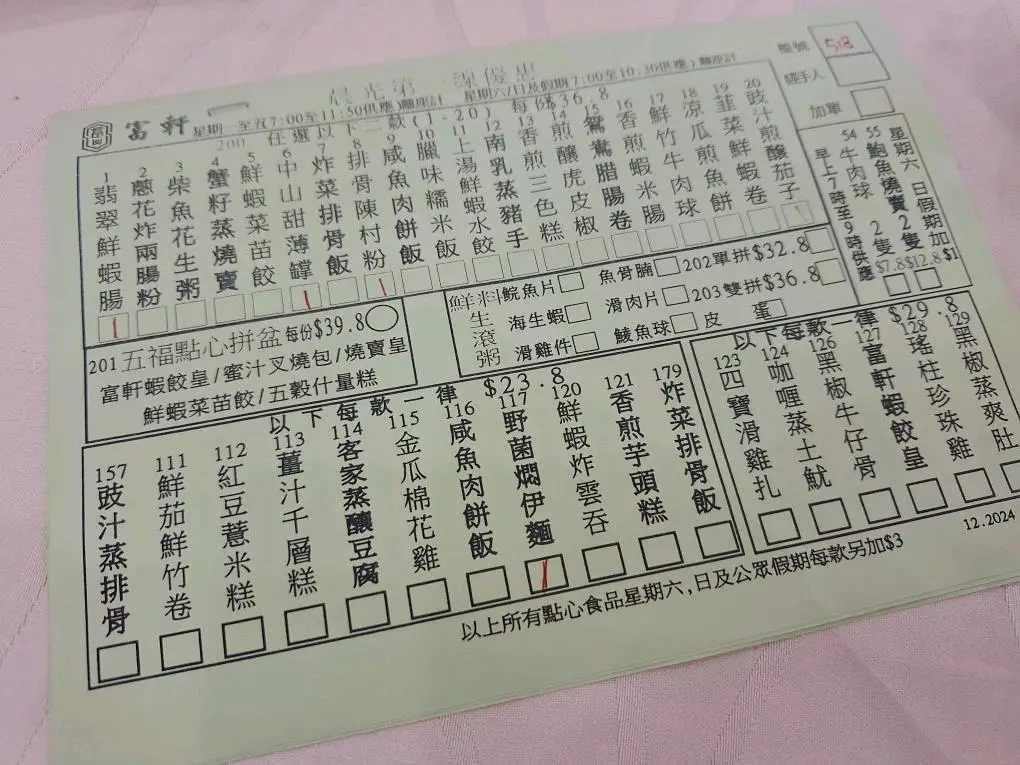 富軒
檯號 518
經手人
加單
晨光第一線優惠
星期一至五7:00至11:50供應)離座計 星期六/日及假期7:00至10:30供應)離座計
200 任選以下二款(1-20) 每份$36.8
1 翡翠鮮蝦腸
2 蔥花炸兩腸粉
3 柴魚花生粥
4 蟹籽蒸燒賣
5 鮮蝦菜苗餃
6 中山甜薄罉
7 炸菜排骨飯
8 排骨陳村粉
9 咸魚肉餅飯
10 臘味糯米飯
11 上湯鮮蝦水餃
12 南乳蒸豬手
13 香煎三色糕
14 煎釀虎皮椒
15 鴛鴦腊腸卷
16 香煎蝦米腸
17 鮮竹牛肉球
18 涼瓜煎魚餅
19 韮菜鮮蝦卷
20 豉汁煎釀茄子
星期六 日假期加$1
55 鮑魚燒賣2隻$12.8
54 牛肉球 2隻$7.8
早上7時至9時供應
201五福點心拼盆每份$39.8
富軒蝦餃皇/蜜汁叉燒包/燒賣皇
鮮蝦菜苗餃/五穀什量糕
鮮料生滾粥
鯇魚片 魚骨腩 202單拼$32.8
海生蝦 滑肉片 203雙拼$36.8
滑雞件 鯪魚球 皮蛋
以下每款一律 $23.8
157 豉汁蒸排骨
111 鮮茄鮮竹卷
112 紅豆薏米糕
113 薑汁千層糕
114 客家蒸釀豆腐
115 金瓜棉花雞
116 咸魚肉餅飯
117 野菌燜伊麵
120 鮮蝦炸雲吞
121 香煎芋頭糕
179 炸菜排骨飯
以下每款一律$29.8
123 四寶滑雞扎
124 咖喱蒸土魷
126 黑椒牛仔骨
127 富軒蝦餃皇
128 瑤柱珍珠雞
129 黑椒蒸爽肚
12.2024
以上所有點心食品星期六,日及公眾假期每款另加$3